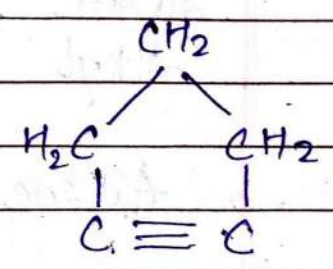 CH2
H2C CH2
C ≡ C